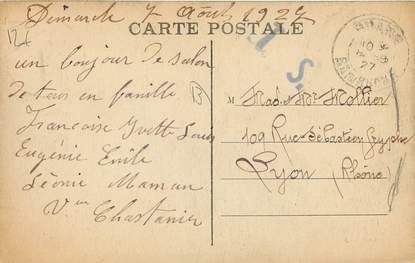 Dimanche 7 Août 1927
CARTE POSTALE
un bonjour de salon
de tous en famille
Françoise Yvette Louis
Eugénie Emile
Léonie Maman
Vve Chastanier
B
M Mad et Mr Mollier
109 Rue Sébastien Gryphe
Lyon (Rhône)
27